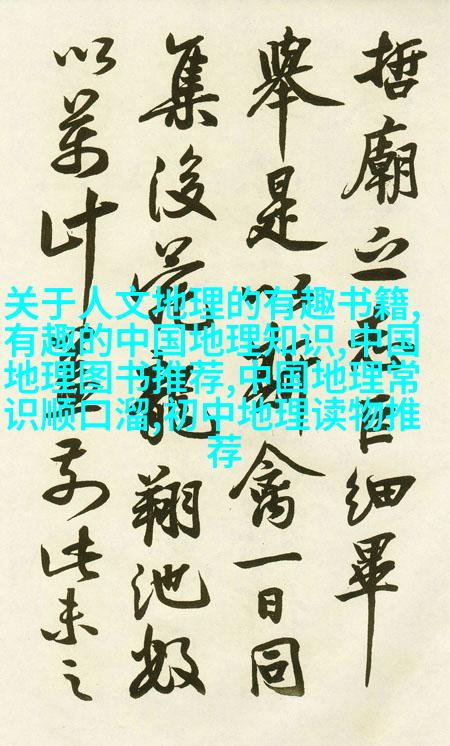 哲廟之巨細畢
舉是以禽一日同
集後苑龍翔池數
以萬計前此未之
关于人文地理的有趣书籍,
有趣的中国地理知识,中国
地理图书推荐,中国地理常
识顺口溜,初中地理读物推
荐